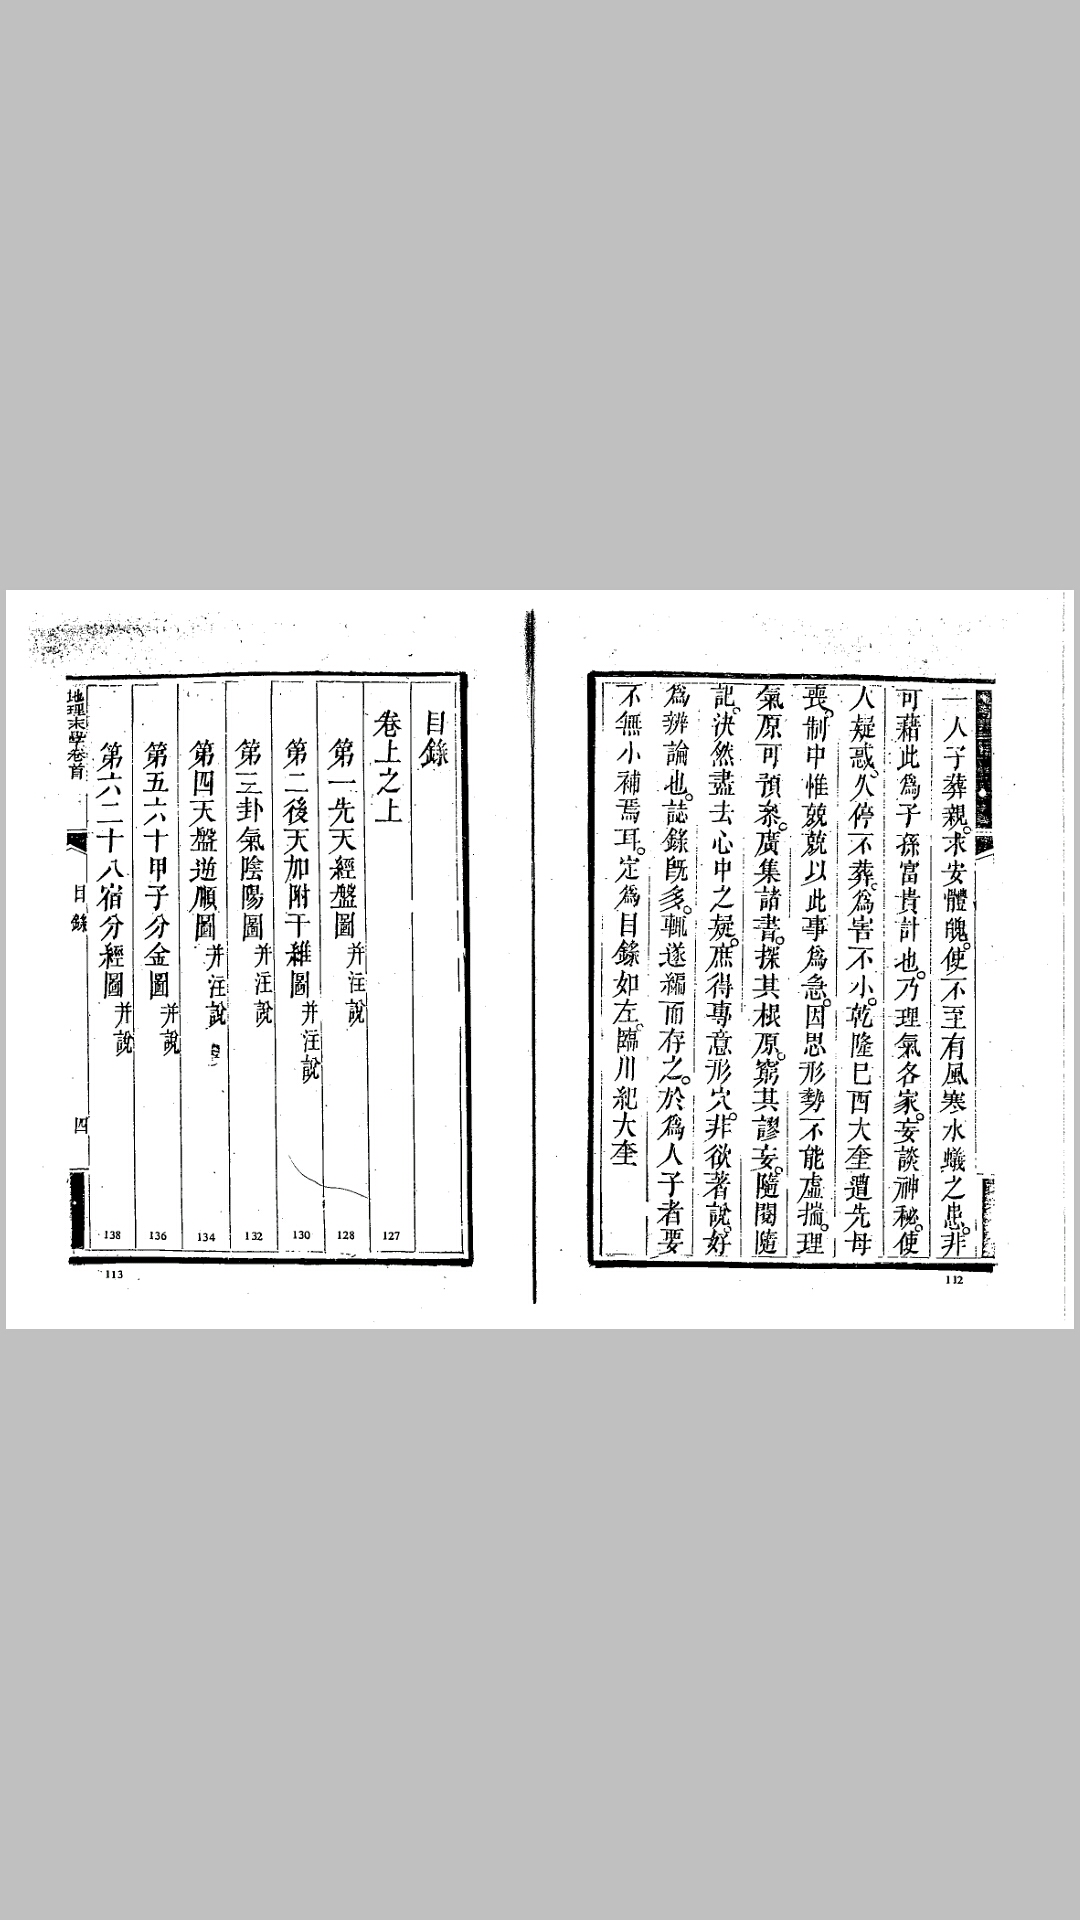 一人子葬親。求安體魄。使不至有風寒水蟻之患。非
可藉此爲子孫富貴計也。乃理氣各家。妄談神秘。使
人疑惑。久停不葬。爲害不小。乾隆巳酉大奎遭先母
喪。制中惟兢兢以此事爲急。因思形勢不能虛揣。理
氣原可預叅。廣集諸書。探其根原。窮其謬妄。隨閱隨
記。決然盡去心中之疑。庶得專意形穴。非欲著說。好
爲辨論也。誌錄旣多。輒遂編而存之。於爲人子者要
不無小補焉耳。定爲目錄如左。臨川紀大奎
112
目錄
卷上之上 127
第一先天經盤圖 并注說 128
第二後天加附干維圖 并注說 130
第三卦氣陰陽圖 并注說 132
第四天盤逆順圖 并注說 134
第五六十甲子分金圖 并說 136
第六二十八宿分經圖 并說 138
地理末學卷首
目錄
四
113